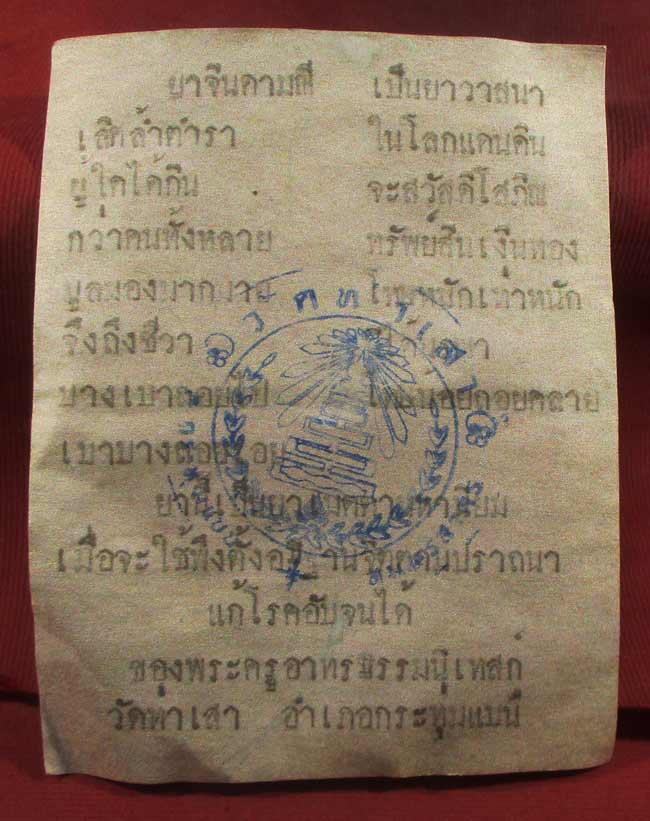 ยาจินดามณี เป็นยาวาสนา
เลิศล้ำตำรา ในโลกแดนดิน
ผู้ใดได้กิน จะสวัสดิโสภิณ
กว่าคนทั้งหลาย ทรัพย์สินเงินทอง
มูลมองมากมาย โทษหนักเท่าหนัก
จึงถึงชีวา
บางเบาถอยไป โทษน้อยถอยคลาย
เบาบางถอย
ยานี้เป็นยาเมตตามหานิยม
เมื่อจะใช้พึงตั้งอธิฐานจิตตามปราถนา
แก้โรคอับจนได้
ของพระครูอาทรธรรมนิเทสก์
วัดท่าเสา อำเภอกระทุ่มแบน
วัดท่าเสา